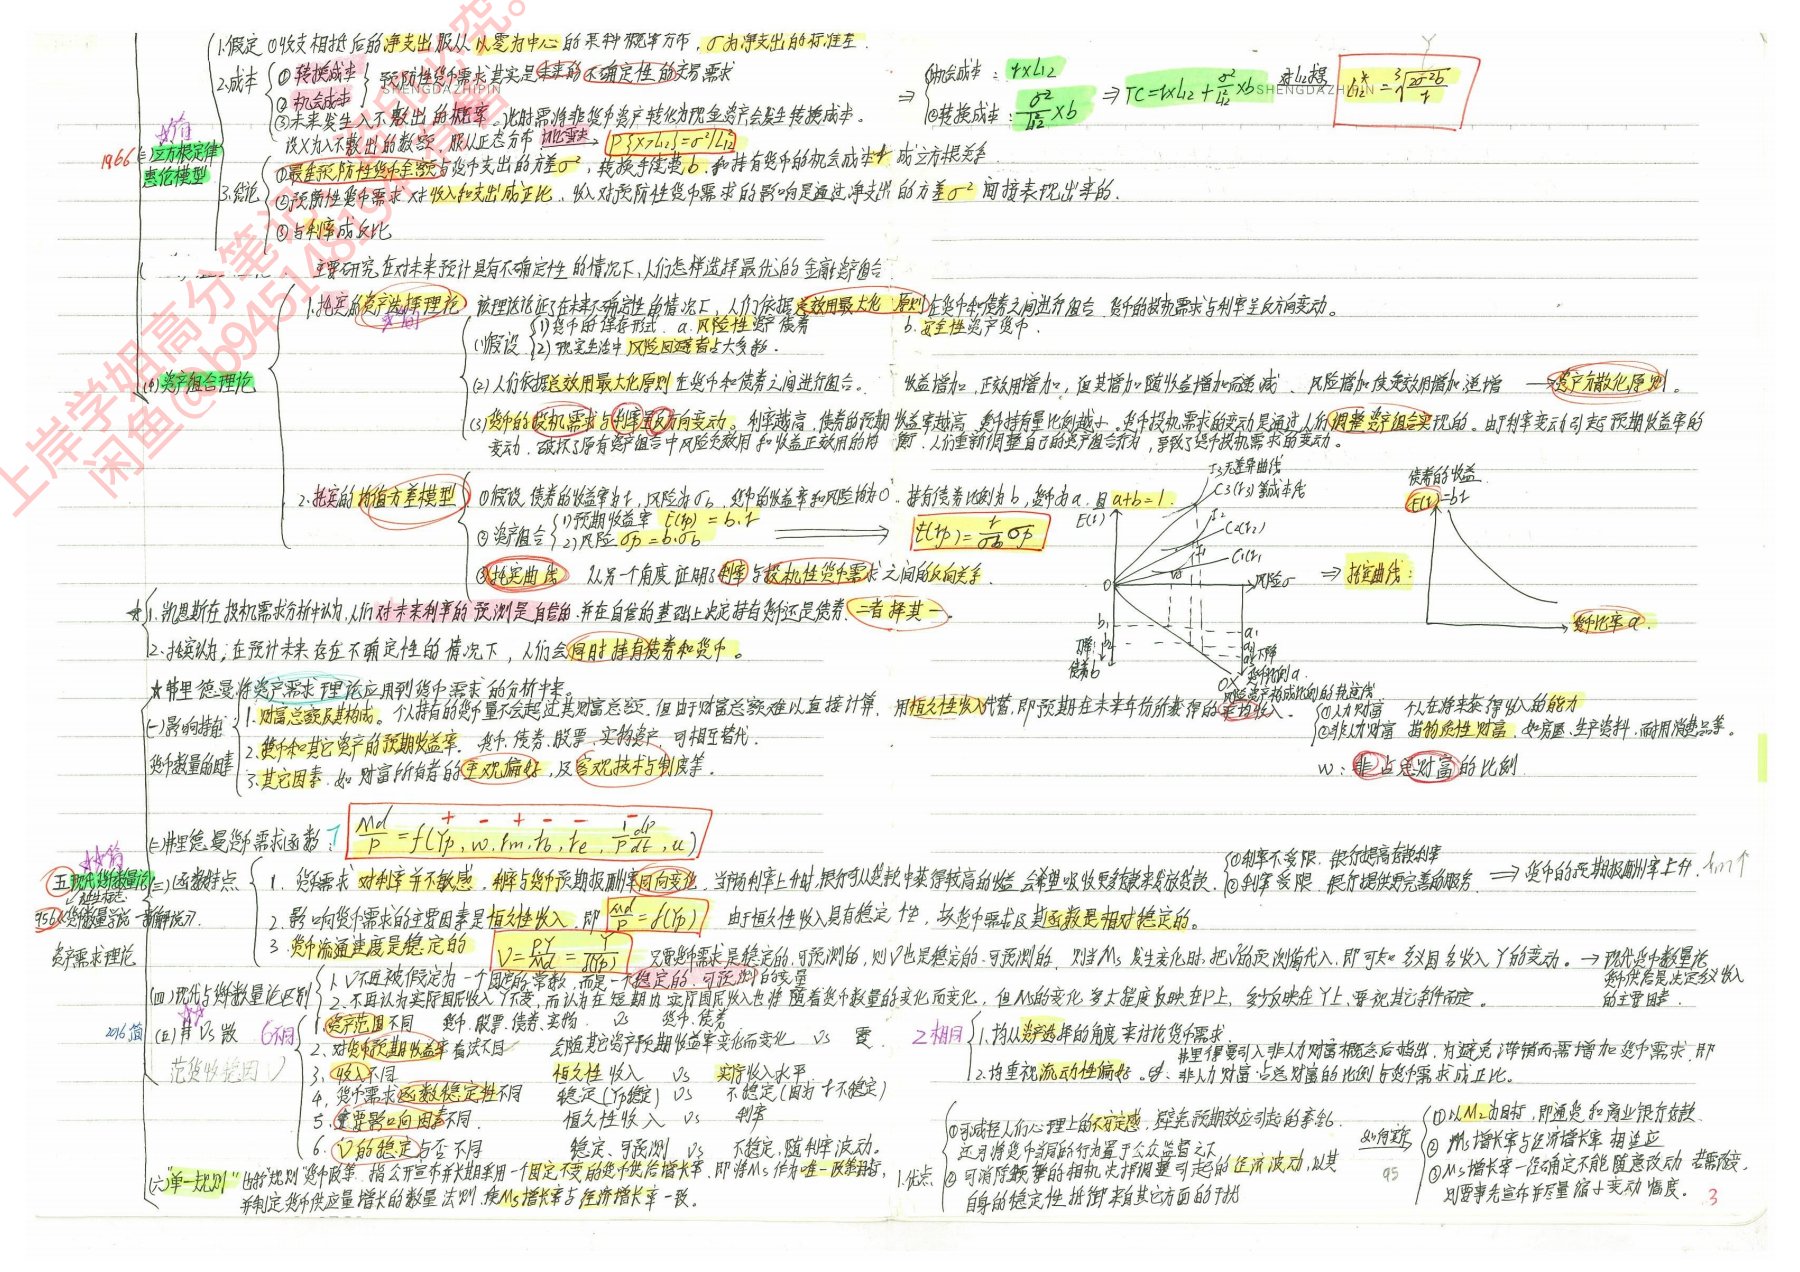 1.假定 ①收支相抵后的净支出服从以零为中心的某种概率分布，σ为净支出的标准差．
2.成本 ①转换成本 ②机会成本 } 预防性货币需求其实是未来的不确定性的交易需求
③未来发生入不敷出的概率。此时需将非货币资产转化为现金资产会发生转换成本．
设X为入不敷出的数额，服从正态分布 → P{X>L12}=σ²/L12²
⇒ ①机会成本：r×L12
②转换成本：σ²/L12²×b
⇒ TC=r×L12+σ²/L12²×b 对L12求导 L12*=³√(2σ²b/r)
SHENGDAZHIPIN
SHENGDAZHIPIN
1966 (三)立方根定律 惠伦模型
3.结论 ①最佳预防性货币金额与货币支出的方差σ²，转换手续费b．和持有货币的机会成本r 成立方根关系．
②预防性货币需求对收入和支出成正比．收入对预防性货币需求的影响是通过净支出的方差σ²间接表现出来的．
③与利率成反比
主要研究在对未来预计具有不确定性的情况下，人们怎样选择最优的金融资产组合
(四)资产组合理论
1.托宾的资产选择理论 该理论论证了在未来不确定性的情况下，人们依据总效用最大化原则在货币和债券之间进行组合．货币的投机需求与利率呈反方向变动。
(1)假设 (1)货币的保存形式．a.风险性资产债券 b.安全性资产货币．
(2)现实生活中风险回避者占大多数．
(2)人们依据总效用最大化原则在货币和债券之间进行组合。 收益增加，正效用增加，但其增加随收益增加而递减．风险增加使负效用增加递增 →资产分散化原则。
(3)货币的投机需求与利率呈反方向变动。利率越高，债券的预期收益率越高，货币持有量比例越小。货币投机需求的变动是通过人们调整资产组合实现的。由于利率变动引起预期收益率的
变动．破坏了原有资产组合中风险负效用和收益正效用的均衡．人们重新调整自己的资产组合行为，导致了货币投机需求的变动。
2.托宾的均值方差模型 ①假设．债券的收益率为r，风险为σb．货币的收益率和风险均为0．持有债券比例为b，货币为a．且a+b=1．
②资产组合 (1)预期收益率 E(rp)=b.r
2)风险 σp=b.σb
⇒ E(rp)=r/σb σp
③托宾曲线 从另一个角度证明了利率与投机性货币需求之间的反向关系．
I3无差异曲线
C3(r3)等成本线
E(r)
I2
C2(r2)
C1(r1
0
风险σ
b1
a1
下降
债券b
⇒ 托宾曲线：
债券的收益
E(r)=br
货币比率a．
★ 1.凯恩斯在投机需求分析中认为，人们对未来利率的预测是自信的．并在自信的基础上决定持有货币还是债券．二者择其一。
2.托宾认为，在预计未来存在不确定性的情况下，人们会同时持有债券和货币。
★弗里德曼将资产需求理论应用到货币需求的分析中来。
(一)影响持有货币数量的因素
1.财富总额及其构成。个人持有的货币量不会超过其财富总额．但由于财富总额难以直接计算，用恒久性收入代替，即预期在未来年份所获得的平均收入。
①人力财富 个人在将来获得收入的能力
②非人力财富 指物质性财富．如房屋、生产资料，耐用消费品等。
2.货币和其它资产的预期收益率．货币、债券、股票、实物资产．可相互替代．
3.其它因素．如财富所有者的主观偏好，及客观技术与制度等．
w：非占总财富的比例．
(二)弗里德曼货币需求函数： Md/P=f(Yp, w. rm. rb, re, 1/P dP/dt, u)
+ − + − − −
五 现代货币数量论
1956《货币数量学说 一新解说》．
资产需求理论
(三)函数特点
1. 货币需求对利率并不敏感，利率与货币预期报酬率同向变化．当市场利率上升时，银行可以贷款中获得较高的收益，会希望吸收更多存款来发放贷款．
①利率不受限．银行提高存款利率
②利率受限．银行提供更完善的服务．
⇒ 货币的预期报酬率上升．rm↑
2. 影响货币需求的主要因素是恒久性收入．即 Md/P=f(Yp) 由于恒久性收入具有稳定性，故货币需求及其函数是相对稳定的。
3. 货币流通速度是稳定的 V=PY/Md=Y/f(Yp) 只要货币需求是稳定的．可预测的，则V也是稳定的．可预测的．则当Ms发生变化时．把V的预测值代入，即可知名义国名收入Y的变动。→现代货币数量论
货币供给是决定名义收入
的主要因素．
(四)现代与货币数量论区别
1. V不再被假定为一个固定的常数，而是一个稳定的，可预测的变量
2.不再认为实际国民收入Y不变，而认为在短期内实际国民收入也将随着货币数量的变化而变化．但Ms的变化多大程度反映在P上，多少反映在Y上，要视其它条件而定。
2016简 (五)弗 VS 凯 6不同
范货收稳因V)
1.资产范围不同 货币.股票.债券.实物． VS 货币.债券
2.对货币预期收益率看法不同 会随其它资产预期收益率变化而变化 VS 零．
3.收入不同 恒久性收入 VS 实际收入水平．
4.货币需求函数稳定性不同 稳定(Yp稳定) VS 不稳定(因为r不稳定)
5.重要影响因素不同． 恒久性收入 VS 利率
6. V的稳定与否不同 稳定、可预测 VS 不稳定，随利率波动。
2相同
1.均从资产选择的角度来讨论货币需求．
2.均重视流动性偏好。 弗里德曼引入非人力财富概念后指出，为避免滞销而需增加货币需求．即
非人力财富占总财富的比例与货币需求成正比。
(六)"单一规则" "规则"货币政策．指公开宣布并长期采用一个固定不变的货币供给增长率．即将Ms作为唯一政策目标，
并制定货币供应量增长的数量法则．使Ms增长率与经济增长率一致。
1.优点
①可减轻人们心理上的不安定感，避免预期效应引起的紊乱．
还可将货币当局的行为置于公众监督之下
②可消除频繁的相机抉择调量引起的经济波动，以其
自身的稳定性抵御来自其它方面的干扰
如何实行
95
①以M2为目标，即通货和商业银行存款．
②Ms增长率与经济增长率相适应
③Ms增长率一经确定不能随意改动 若需改变．
则要事先宣布并尽量缩小变动幅度。
3
上岸学姐高分笔记
闲鱼@tb945148194